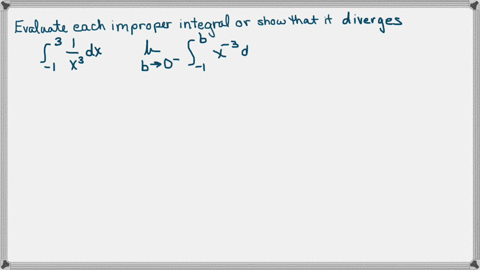 Evaluate each improper integral or show that it diverges
∫₋₁³ 1/x³ dx   lim b→0⁻ ∫₋₁ᵇ x⁻³ d